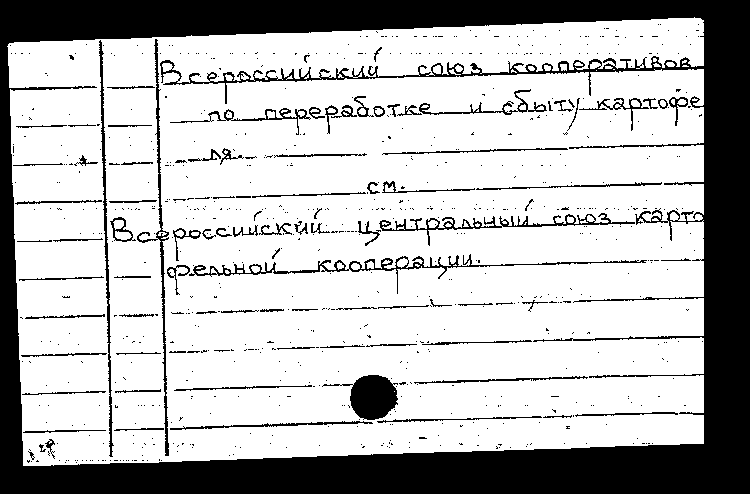 Всероссийский союз кооперативов
по переработке и сбыту картофе
ля.
см.
Всероссийский центральный союз карто
фельной кооперации.